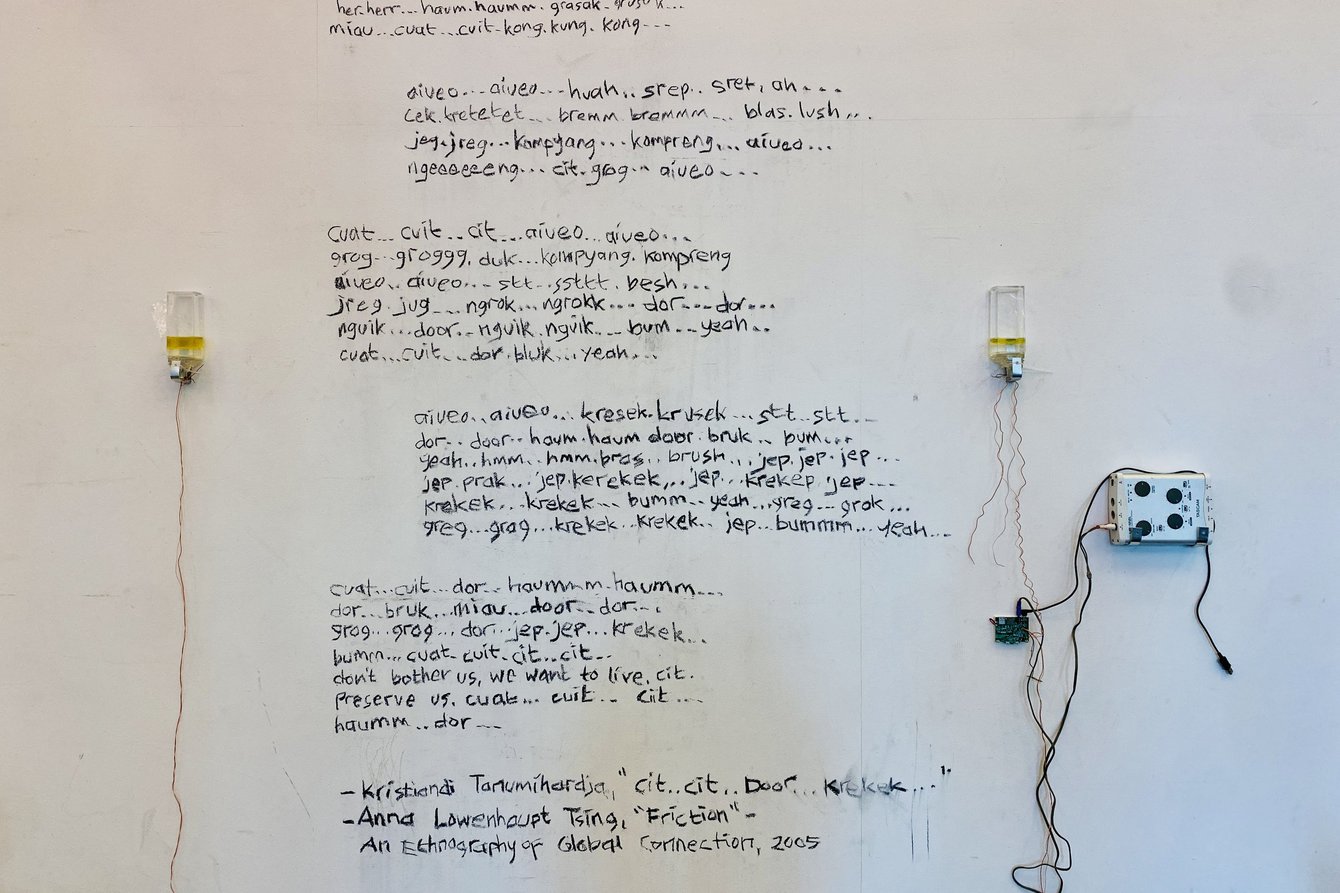 her.herr... haum.haumm. grasak-
miau...cuat...cuit-kong.kung. kong---
aiueo... aiueo...huah.. srep.. sret, ah...
cek.kreteket... bremm bremmmm... blas.lush...
jeg.jreg...kompyang... kompreng... aiueo...
ngeeeeeeng... cit.grog.. aiueo...
cuat... cuit... cit...aiueo...aiueo...
grog...groggg. duk...kompyang. kompreng
aiueo.. aiueo... stt...ssttt. besh...
jreg.jug... ngrok... ngrokk... dor...dor...
nguik...door.. nguik.nguik... bum...yeah..
cuat...cuit...dor.bluk...yeah...
aiueo...aiueo... kresek.krusek...stt..stt...
dor...door..haum.haum door.bruk.. bum...
yeah..hmm..hmm.bras.. brush...jep.jep.jep...
jep.prak...jep.kerekek...jep...krekep.jep...
krekek...krekek... bumm..yeah...greg...grok...
greg...grag...krekek..krekek.. jep...bummm...yeah...
cuat...cuit...dor...haummm.haumm...
dor...bruk...miau...door...dor...
grog...grog...dor...jep.jep...krekek...
bumm...cuat.cuit.cit..cit...
don't bother us, we want to live, cit.
preserve us. cuat... cuit... cit...
haumm..dor...
-Kristiandi Tanumihardja, "cit..cit.. Door... Krekek..."
-Anna Lowenhaupt Tsing, "Friction"-
An Ethnography of Global Connection, 2005
TASCAM